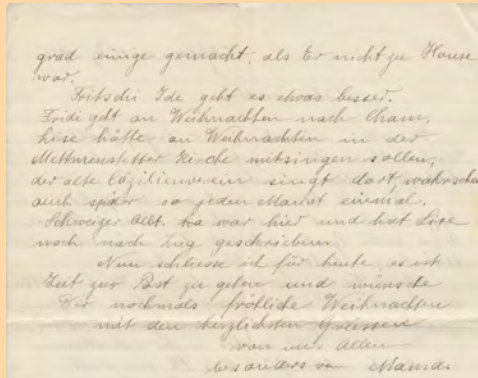 grad einige gemacht, als Er nicht zu Hause
war.
Fritschi Ide geht es etwas besser.
Fridi geht an Weihnachten nach Cham,
Lise hätte an Weihnachten in der
Mettmenstetter Kirche mitsingen sollen,
der alte Cäzilienverein singt dort,
auch später so jeden Monat einmal.
Schweizer Albt. war hier und hat Lise
noch nach Zug geschrieben.
Nun schliesse ich für heute, es ist
Zeit zur Post zu gehen und wünsche
Dir nochmals fröhliche Weihnachten
mit den herzlichsten Grüssen
von uns allen
besonders von Mama.